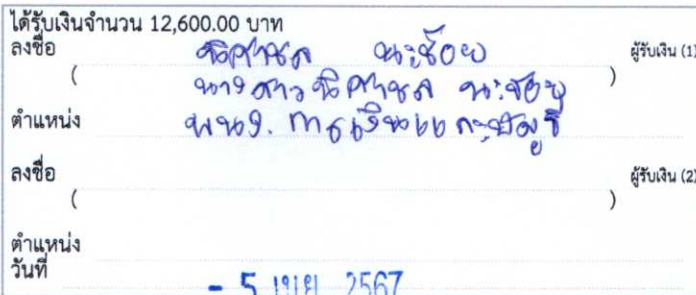 ได้รับเงินจำนวน 12,600.00 บาท
ลงชื่อ ผู้รับเงิน (1)
( นางสาว )
ตำแหน่ง พนง. การเงินและบัญชี
ลงชื่อ ผู้รับเงิน (2)
( )
ตำแหน่ง
วันที่ - 5 เม.ย. 2567